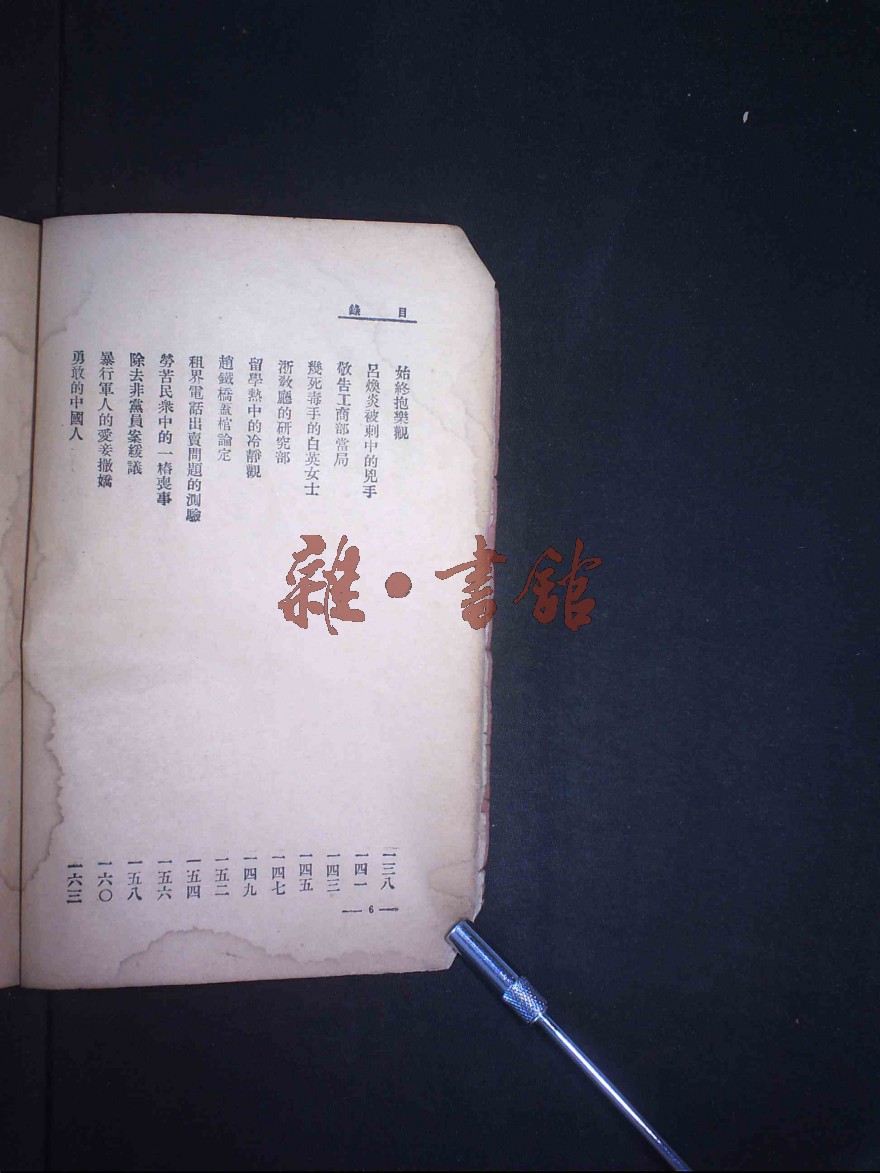 目錄
始終抱樂觀 一三八
呂煥炎被刺中的兇手 一四一
敬告工商部當局 一四三
幾死毒手的白英女士 一四五
浙敎廳的研究部 一四七
留學熱中的冷靜觀 一四九
趙鐵橋蓋棺論定 一五二
租界電話出賣問題的測驗 一五四
勞苦民衆中的一樁喪事 一五六
除去非黨員案緩議 一五八
暴行軍人的愛妾撒嬌 一六〇
勇敢的中國人 一六三
— 6 —
雜·書館